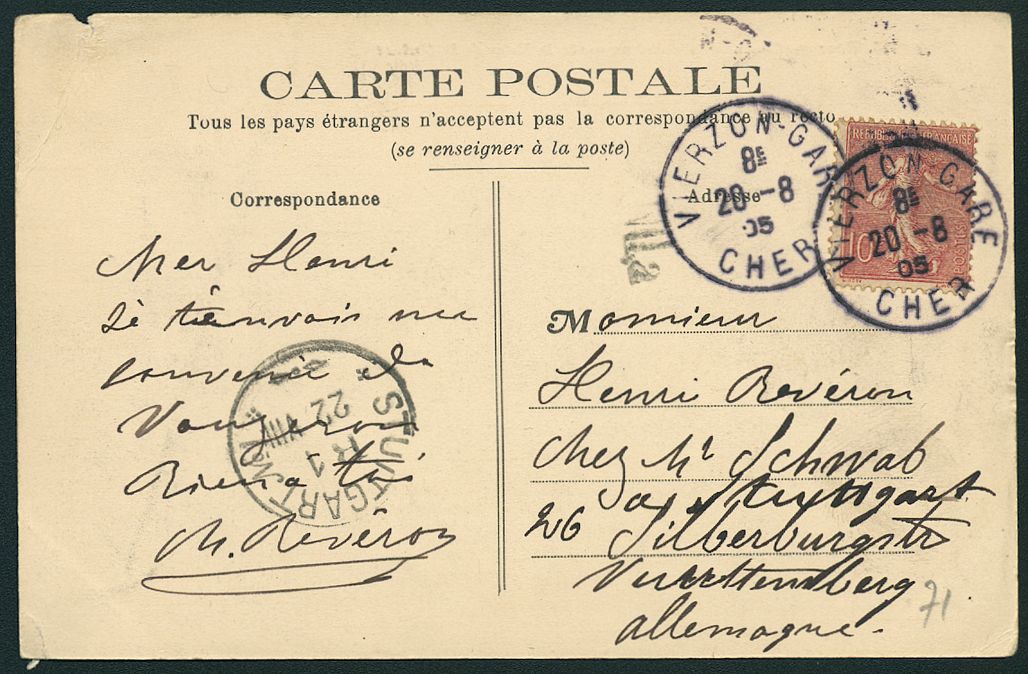 CARTE POSTALE
Tous les pays étrangers n'acceptent pas la correspondance au recto
(se renseigner à la poste)
Correspondance
Adresse
VIERZON-GARE
8E
20 -8
05
CHER
VIERZON-GARE
8E
20 -8
05
CHER
REPUBLIQUE FRANÇAISE
10
POSTES
Mer Henri
Je t'envoie une
souvenir de
Rien à toi
Ch. Revéron
STUTTGART
22 VIII
R 1
Monsieur
Henri Revéron
Chez Mr Schwab
à Stuttgart
26 Silberburgstr
Wurttemberg
Allemagne.
71